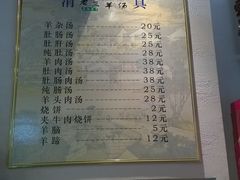 清 老三羊汤 真
羊杂汤 20元
肚肠汤 25元
肚肝汤 25元
纯肚汤 28元
羊肉汤 38元
肚肉汤 38元
肚肠肉汤 38元
纯肠汤 25元
羊头肉汤 28元
烧饼 2元
夹牛肉烧饼 12元
羊脑 5元
羊蹄 12元